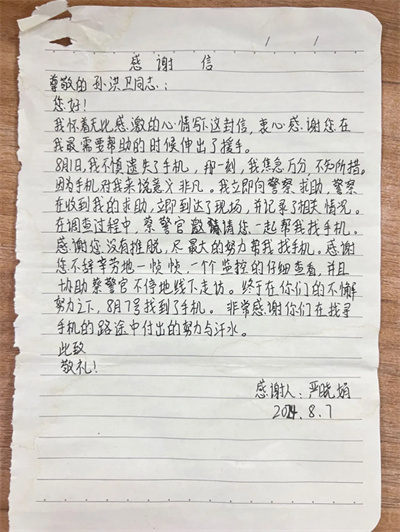 感谢信
尊敬的孙洪卫同志：
您好！
我怀着无比感激的心情写下这封信，衷心感谢您在
我最需要帮助的时候伸出了援手。
8月1日，我不慎遗失了手机，那一刻，我焦急万分，不知所措。
因为手机对我来说意义非凡。我立即向警察求助，警察
在收到我的求助，立即到达了现场，并记录了相关情况。
在调查过程中，蔡警官邀请您一起帮我找手机。
感谢您没有推脱，尽最大的努力帮我找手机。感谢
您不辞辛劳地一帧帧，一个个监控的仔细查看，并且
协助蔡警官不停地线下走访。终于在你们的不懈
努力之下，8月7号找到了手机。非常感谢你们在找寻
手机的路途中付出的努力与汗水。
此致
敬礼！
感谢人：严晓娟
2024.8.7